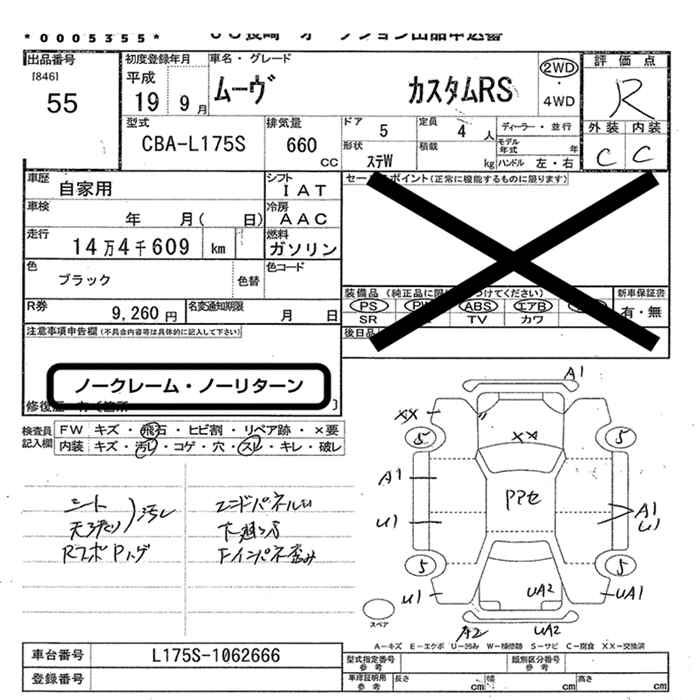 *0005355*
出品番号
[846]
55
初度登録年月
平成
19 9月
車名・グレード
ムーヴ カスタムRS
2WD
・
4WD
評価点
R
外装 内装
C C
型式
CBA-L175S
排気量
660
cc
ドア
5
定員
4 人
ディーラー・並行
モデル年式 年
形状
ステW
積載
kg
ハンドル 左・右
車歴
自家用
シフト
IAT
車検
年 月( 日)
冷房
AAC
走行
14万4千609 km
燃料
ガソリン
色
ブラック
色替
色コード
R券
9,260円
名変通知期限
月 日
注意事項申告欄(不具合内容等は具体的に記入して下さい)
ノークレーム・ノーリターン
セールスポイント(正常に機能するものに限ります)
新車保証書
有・無
PS ABS エアB
SR TV カワ
検査員
記入欄
FW キズ・飛石・ヒビ割・リペア跡・×要
内装 キズ・汚レ・コゲ・穴・スレ・キレ・破レ
シート
汚レ
下廻りサ
A1
XX
5
5
XX
A1
PPセ
A1
U1
U1
5
5
U1
UA2
UA1
A2
UA2
スペア
A－キズ E－エクボ U－凹み W－補修跡 S－サビ C－腐食 XX－交換済
車台番号
L175S-1062666
登録番号
型式指定番号
参考
類別区分番号
参考
車庫証明用
参考
長さ cm
幅 cm
高さ cm